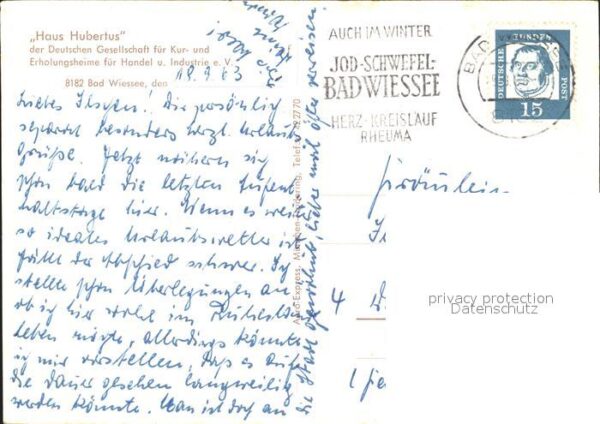 „Haus Hubertus"
der Deutschen Gesellschaft für Kur- und
Erholungsheime für Handel u. Industrie e. V.
8182 Bad Wiessee, den 18.9.63
Liebes ! Die persönlich
separat besonders herzl. Urlaubs
Grüße. Jetzt nähern sich
schon bald die letzten Aufent
haltstage hier. Wenn es weiter
so ideales Urlaubswetter ist
fällt der Abschied schwer. Ich
stellte schon Überlegungen an
ob ich hier wohl im Ruhestand
leben möchte, allerdings könnte
ich mir vorstellen, daß es auf
die Dauer gesehen langweilig
werden könnte. Man ist doch an
die Stadt gewöhnt, lieber mal öfter verreisen.
AUCH IM WINTER
JOD-SCHWEFEL-
BAD WIESSEE
HERZ-KREISLAUF
RHEUMA
BAD WIESSEE
DEUTSCHE
BUNDES
POST
15
Fräulein
4
privacy protection
Datenschutz